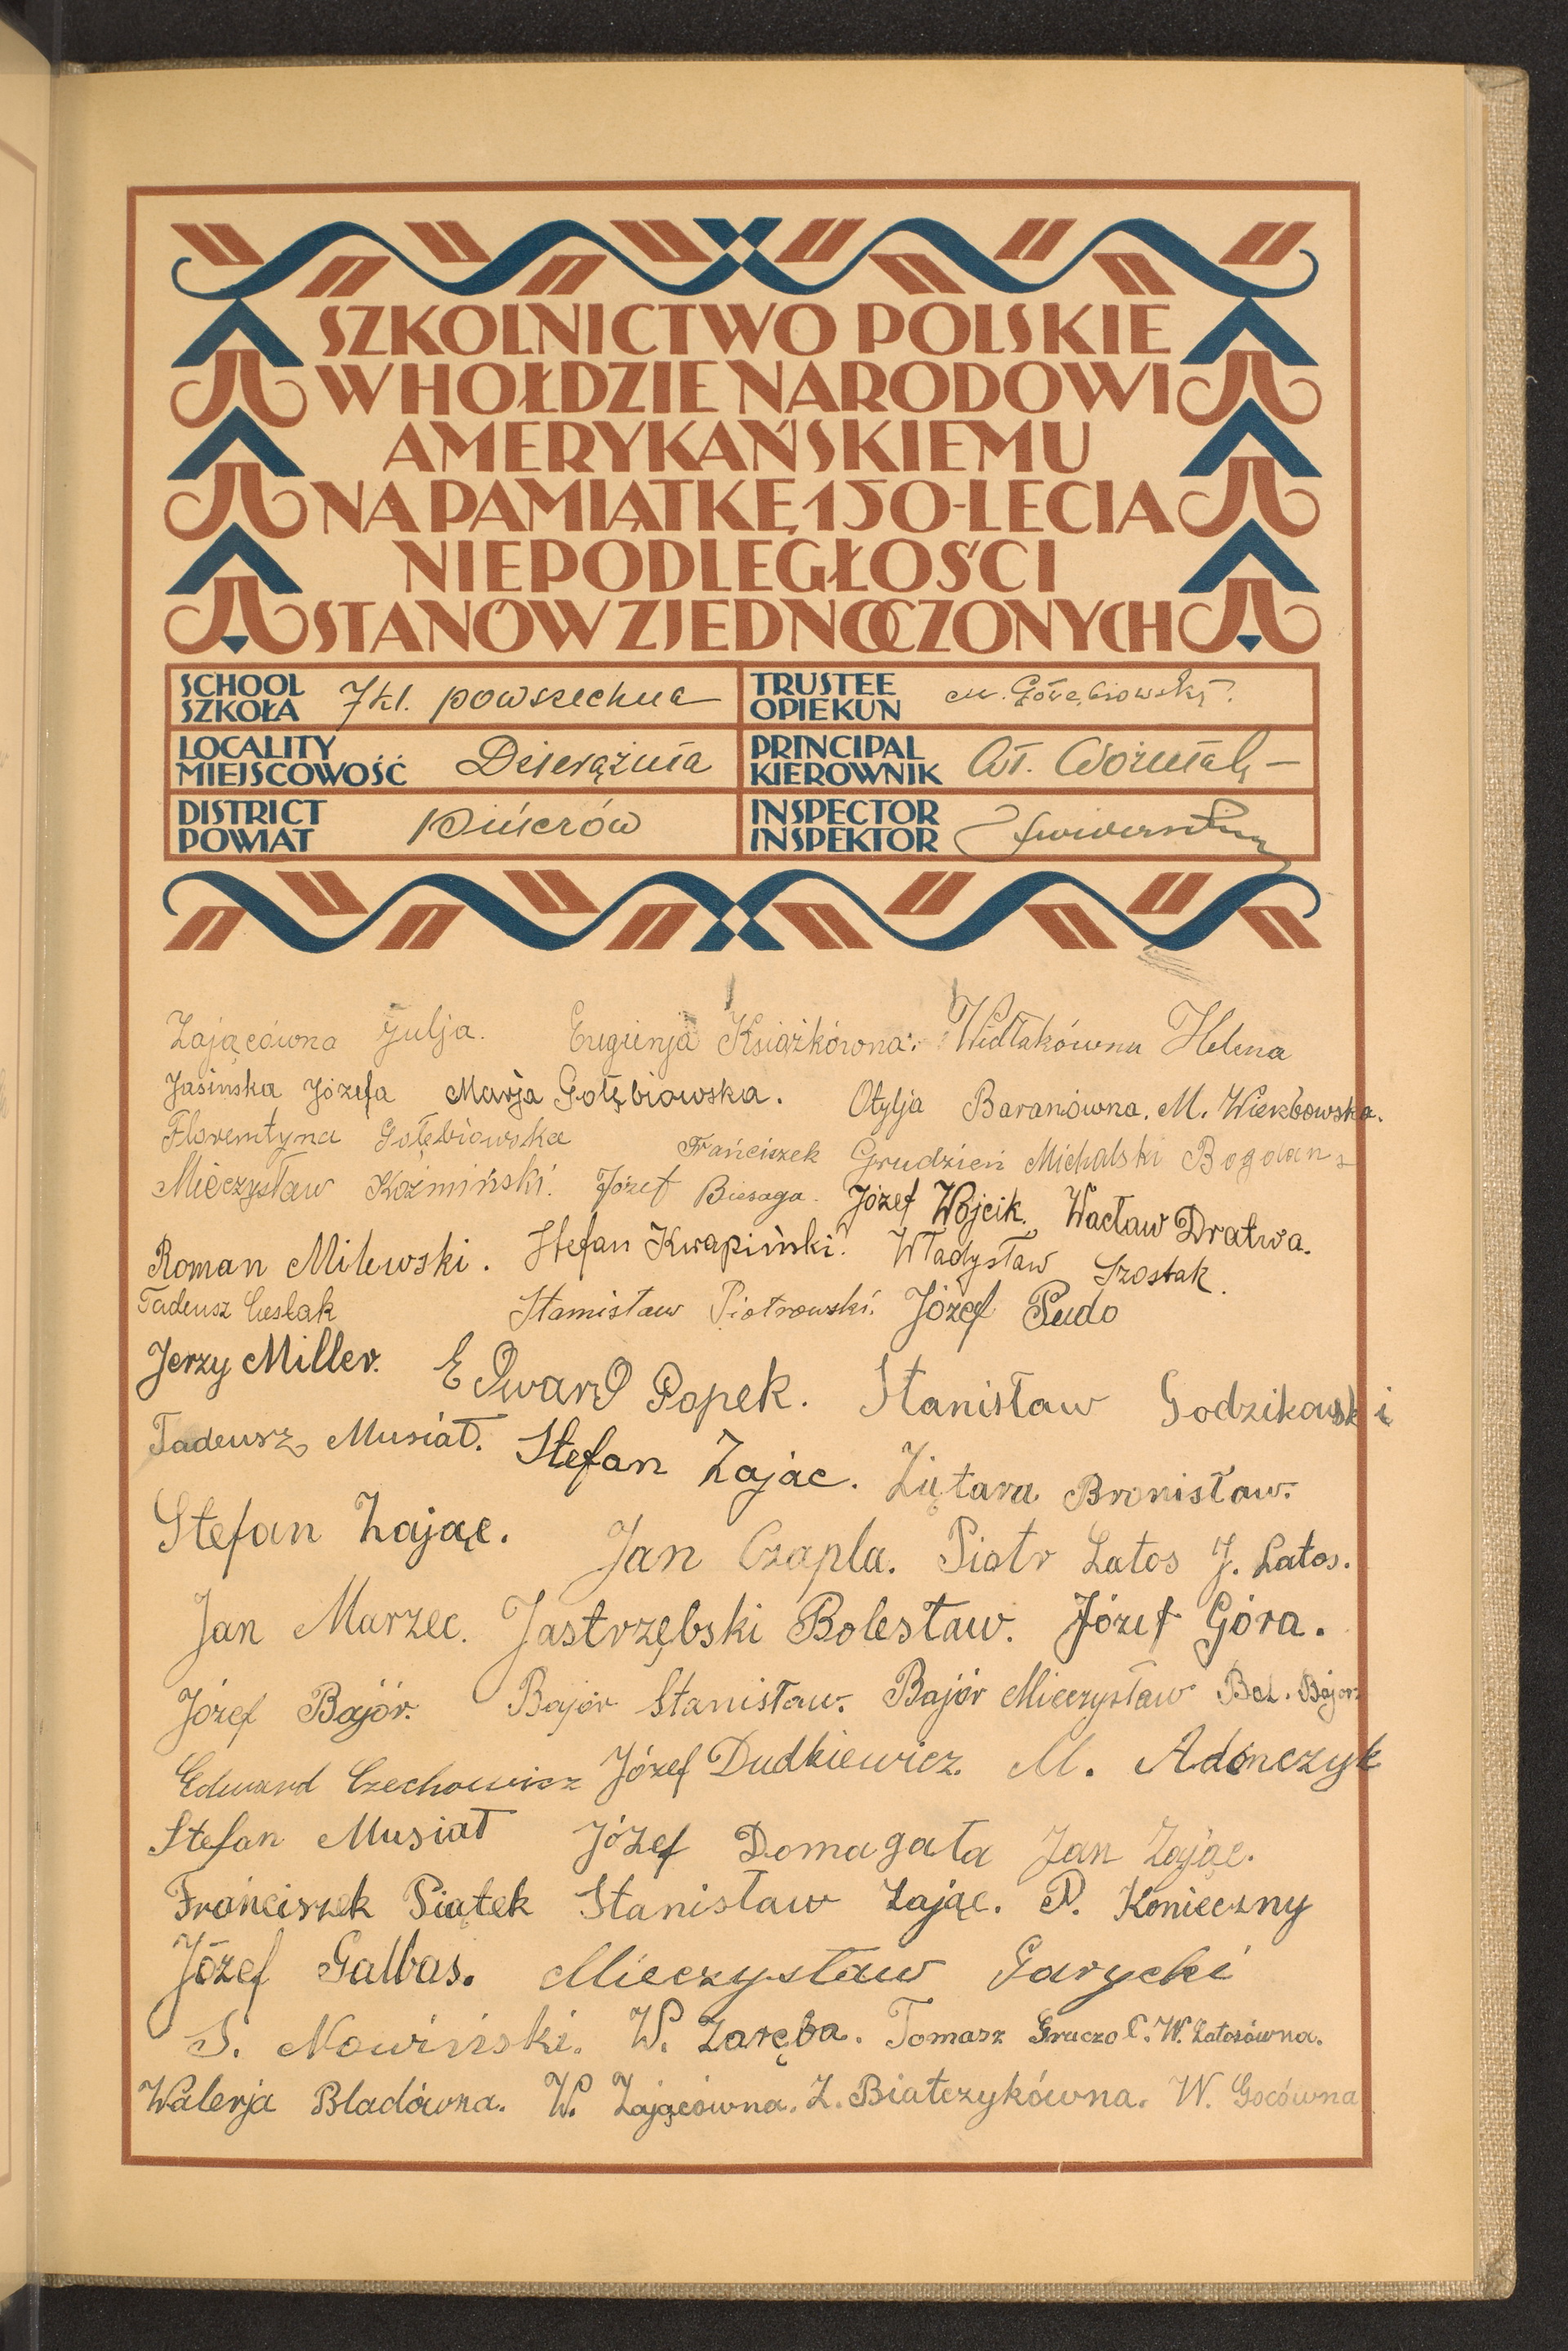 SZKOLNICTWO POLSKIE
W HOŁDZIE NARODOWI
AMERYKAŃSKIEMU
NA PAMIĄTKĘ 150-LECIA
NIEPODLEGŁOŚCI
STANÓW ZJEDNOCZONYCH
SCHOOL SZKOŁA 7 kl. powszechna
TRUSTEE OPIEKUN
LOCALITY MIEJSCOWOŚĆ Dzierążnia
PRINCIPAL KIEROWNIK Wł. Woźniak
DISTRICT POWIAT Pińczów
INSPECTOR INSPEKTOR
Zającówna Julja. Eugienja Książkówna. Widłakówna Helena
Jasińska Józefa Marja Gołębiowska. Otylja Baranówna. M. Wierzbowska.
Florentyna Gołębiowska Frańciszek Grudzień Michalski Bogdan
Mieczysław Koźmiński. Józef Biesaga. Józef Wójcik. Wacław Dratwa.
Roman Milewski. Stefan Kwapiński. Władysław Szostak.
Tadeusz Cieślak Stanisław Piotrowski. Józef Pudo
Jerzy Miller. Edward Popek. Stanisław Godzikowski
Tadeusz Musiał. Stefan Zajac. Ziętara Bronisław.
Stefan Zając. Jan Czapla. Piotr Latos J. Latos.
Jan Marzec. Jastrzębski Bolesław. Józef Góra.
Józef Bajór. Bajór Stanisław. Bajór Mieczysław Bol. Bajor
Edward Czechowicz Józef Dudkiewicz. M. Adonczyk
Stefan Musiał Józef Domagała Jan Zając.
Frańciszek Piątek Stanisław Zając. P. Konieczny
Józef Galbas. Mieczysław Garycki
S. Nowiński. W. Zaręba. Tomasz Gruczoł. W. Latosówna.
Walerja Bladówna. W. Zającówna. Z. Białczykówna. W. Gocówna